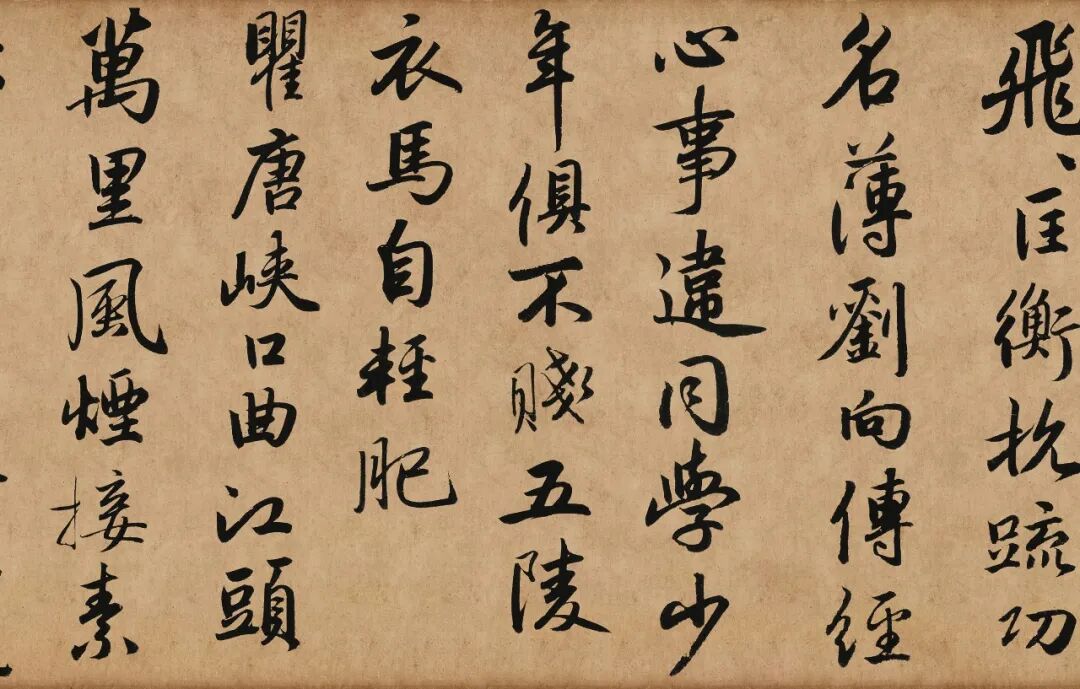 飛〻匡衡抗疏功
名薄劉向傳經
心事違同學少
年俱不賤五陵
衣馬自輕肥
瞿唐峽口曲江頭
萬里風煙接素